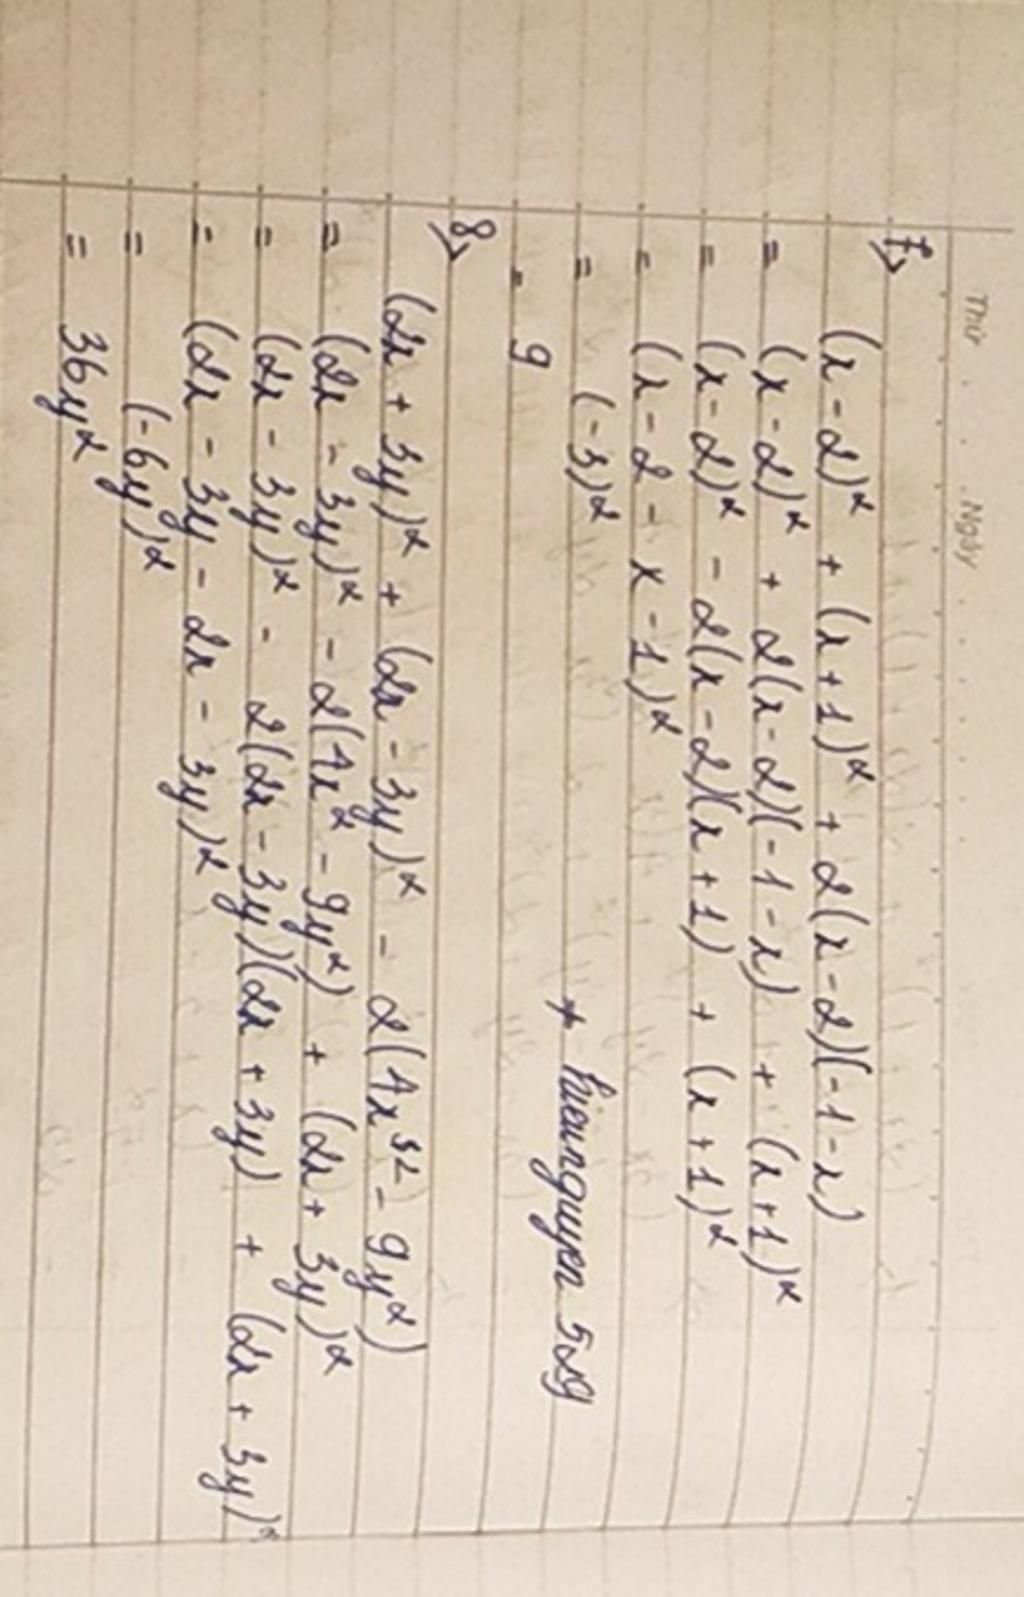 Thứ . . . . Ngày . . . . . . . .
7>
(x - 2)² + (x + 1)² + 2(x - 2)(-1 - x)
= (x - 2)² + 2(x - 2)(-1 - x) + (x + 1)²
= (x - 2)² - 2(x - 2)(x + 1) + (x + 1)²
= (x - 2 - x - 1)²
= (-3)²
= 9
* hieunguyen 529
8>
(2x + 3y)² + (2x - 3y)² - 2(4x² - 9y²)
= (2x - 3y)² - 2(4x² - 9y²) + (2x + 3y)²
= (2x - 3y)² - 2(2x - 3y)(2x + 3y) + (2x + 3y)²
= (2x - 3y - 2x - 3y)²
= (-6y)²
= 36y²